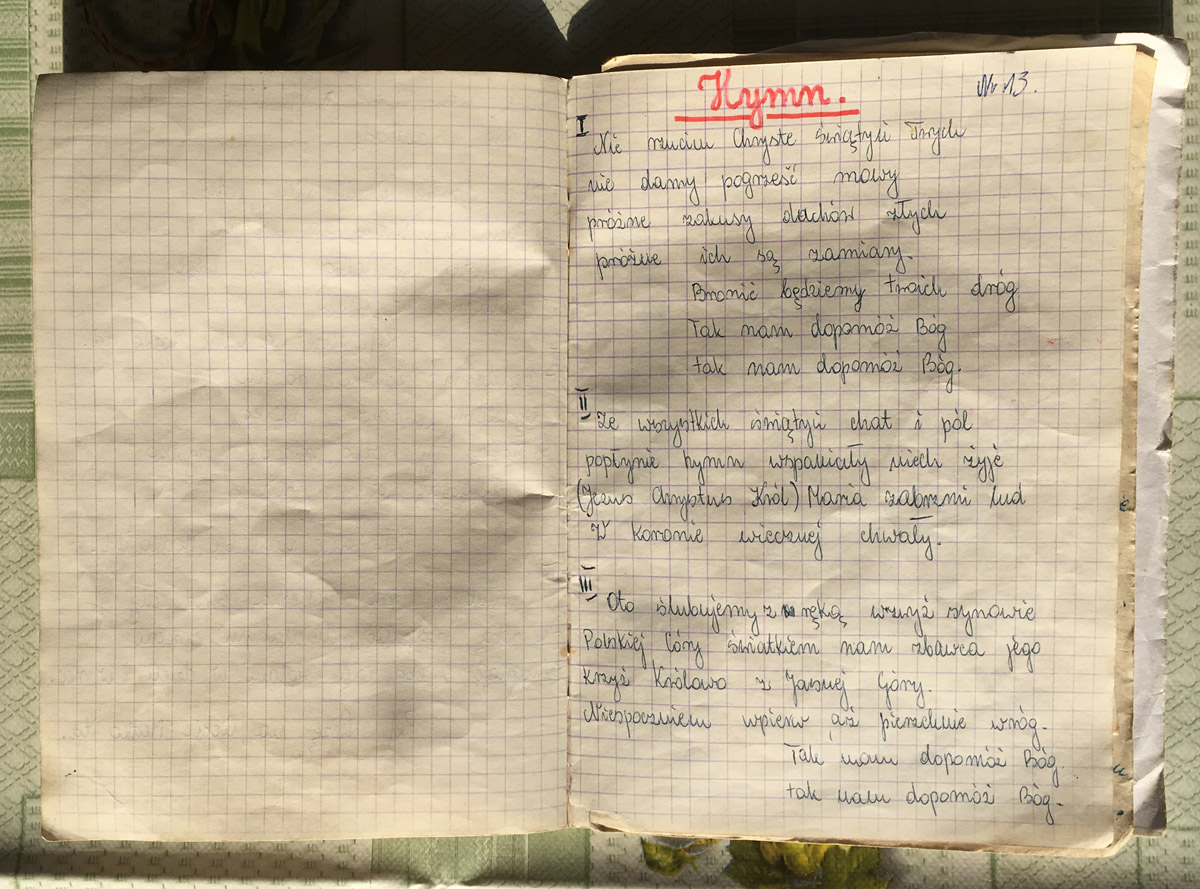 Hymn.
Nr 13.
I
Nie rzucim Chryste świątyń Twych
nie damy pogrześć mowy
próżne zakusy duchów złych
próżne ich są zamiary.
Bronić będziemy twoich dróg
Tak nam dopomóż Bóg
tak nam dopomóż Bóg.
II
Ze wszystkich świątyń chat i pól
popłynie hymn wspaniały niech żyje
(Jezus Chrystus Król) Maria zabrzmi lud
W koronie wiecznej chwały.
III
Oto ślubujemy z ręką wzwyż synowie
Polskiej Córy świadkiem nam zbawca jego
krzyż Królowo z Jasnej Góry.
Niespoczniem wpierw aż pierzchnie wróg.
Tak nam dopomóż Bóg.
tak nam dopomóż Bóg.